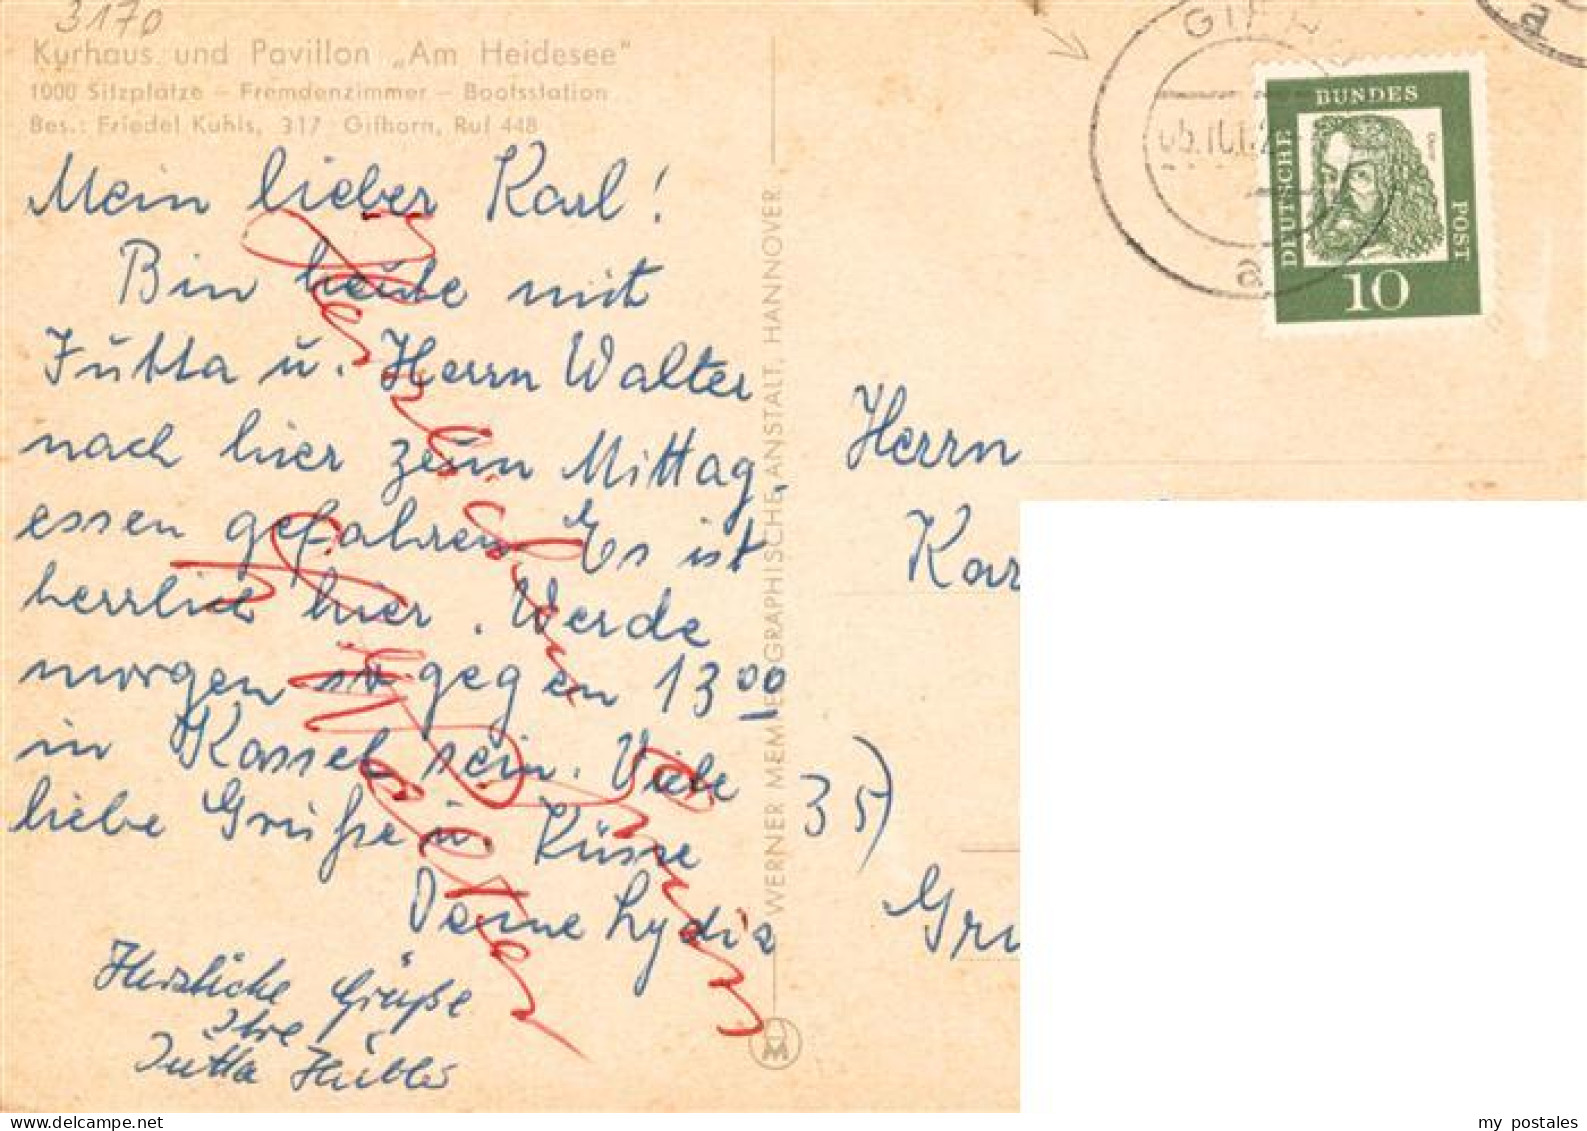 3170
Kurhaus und Pavillon „Am Heidesee"
1000 Sitzplätze – Fremdenzimmer – Bootsstation
Bes.: Friedel Kuhls, 317 Gifhorn, Ruf 448
Mein lieber Karl!
Bin heute mit
Jutta u. Herrn Walter
nach hier zum Mittag-
essen gefahren. Es ist
herrlich hier. Werde
morgen so gegen 13 00
in Kassel sein. Viele
liebe Grüße u. Küsse
Deine Lydia
Herzliche Grüße
Ihre
Jutta
Herzlichen
Gruß
Walter
WERNER MEMMEN, GRAPHISCHE ANSTALT, HANNOVER
M
GIFH
a
a
DEUTSCHE
BUNDES
POST
Dürer
10
Herrn
Kar
35)
Gru
my postales